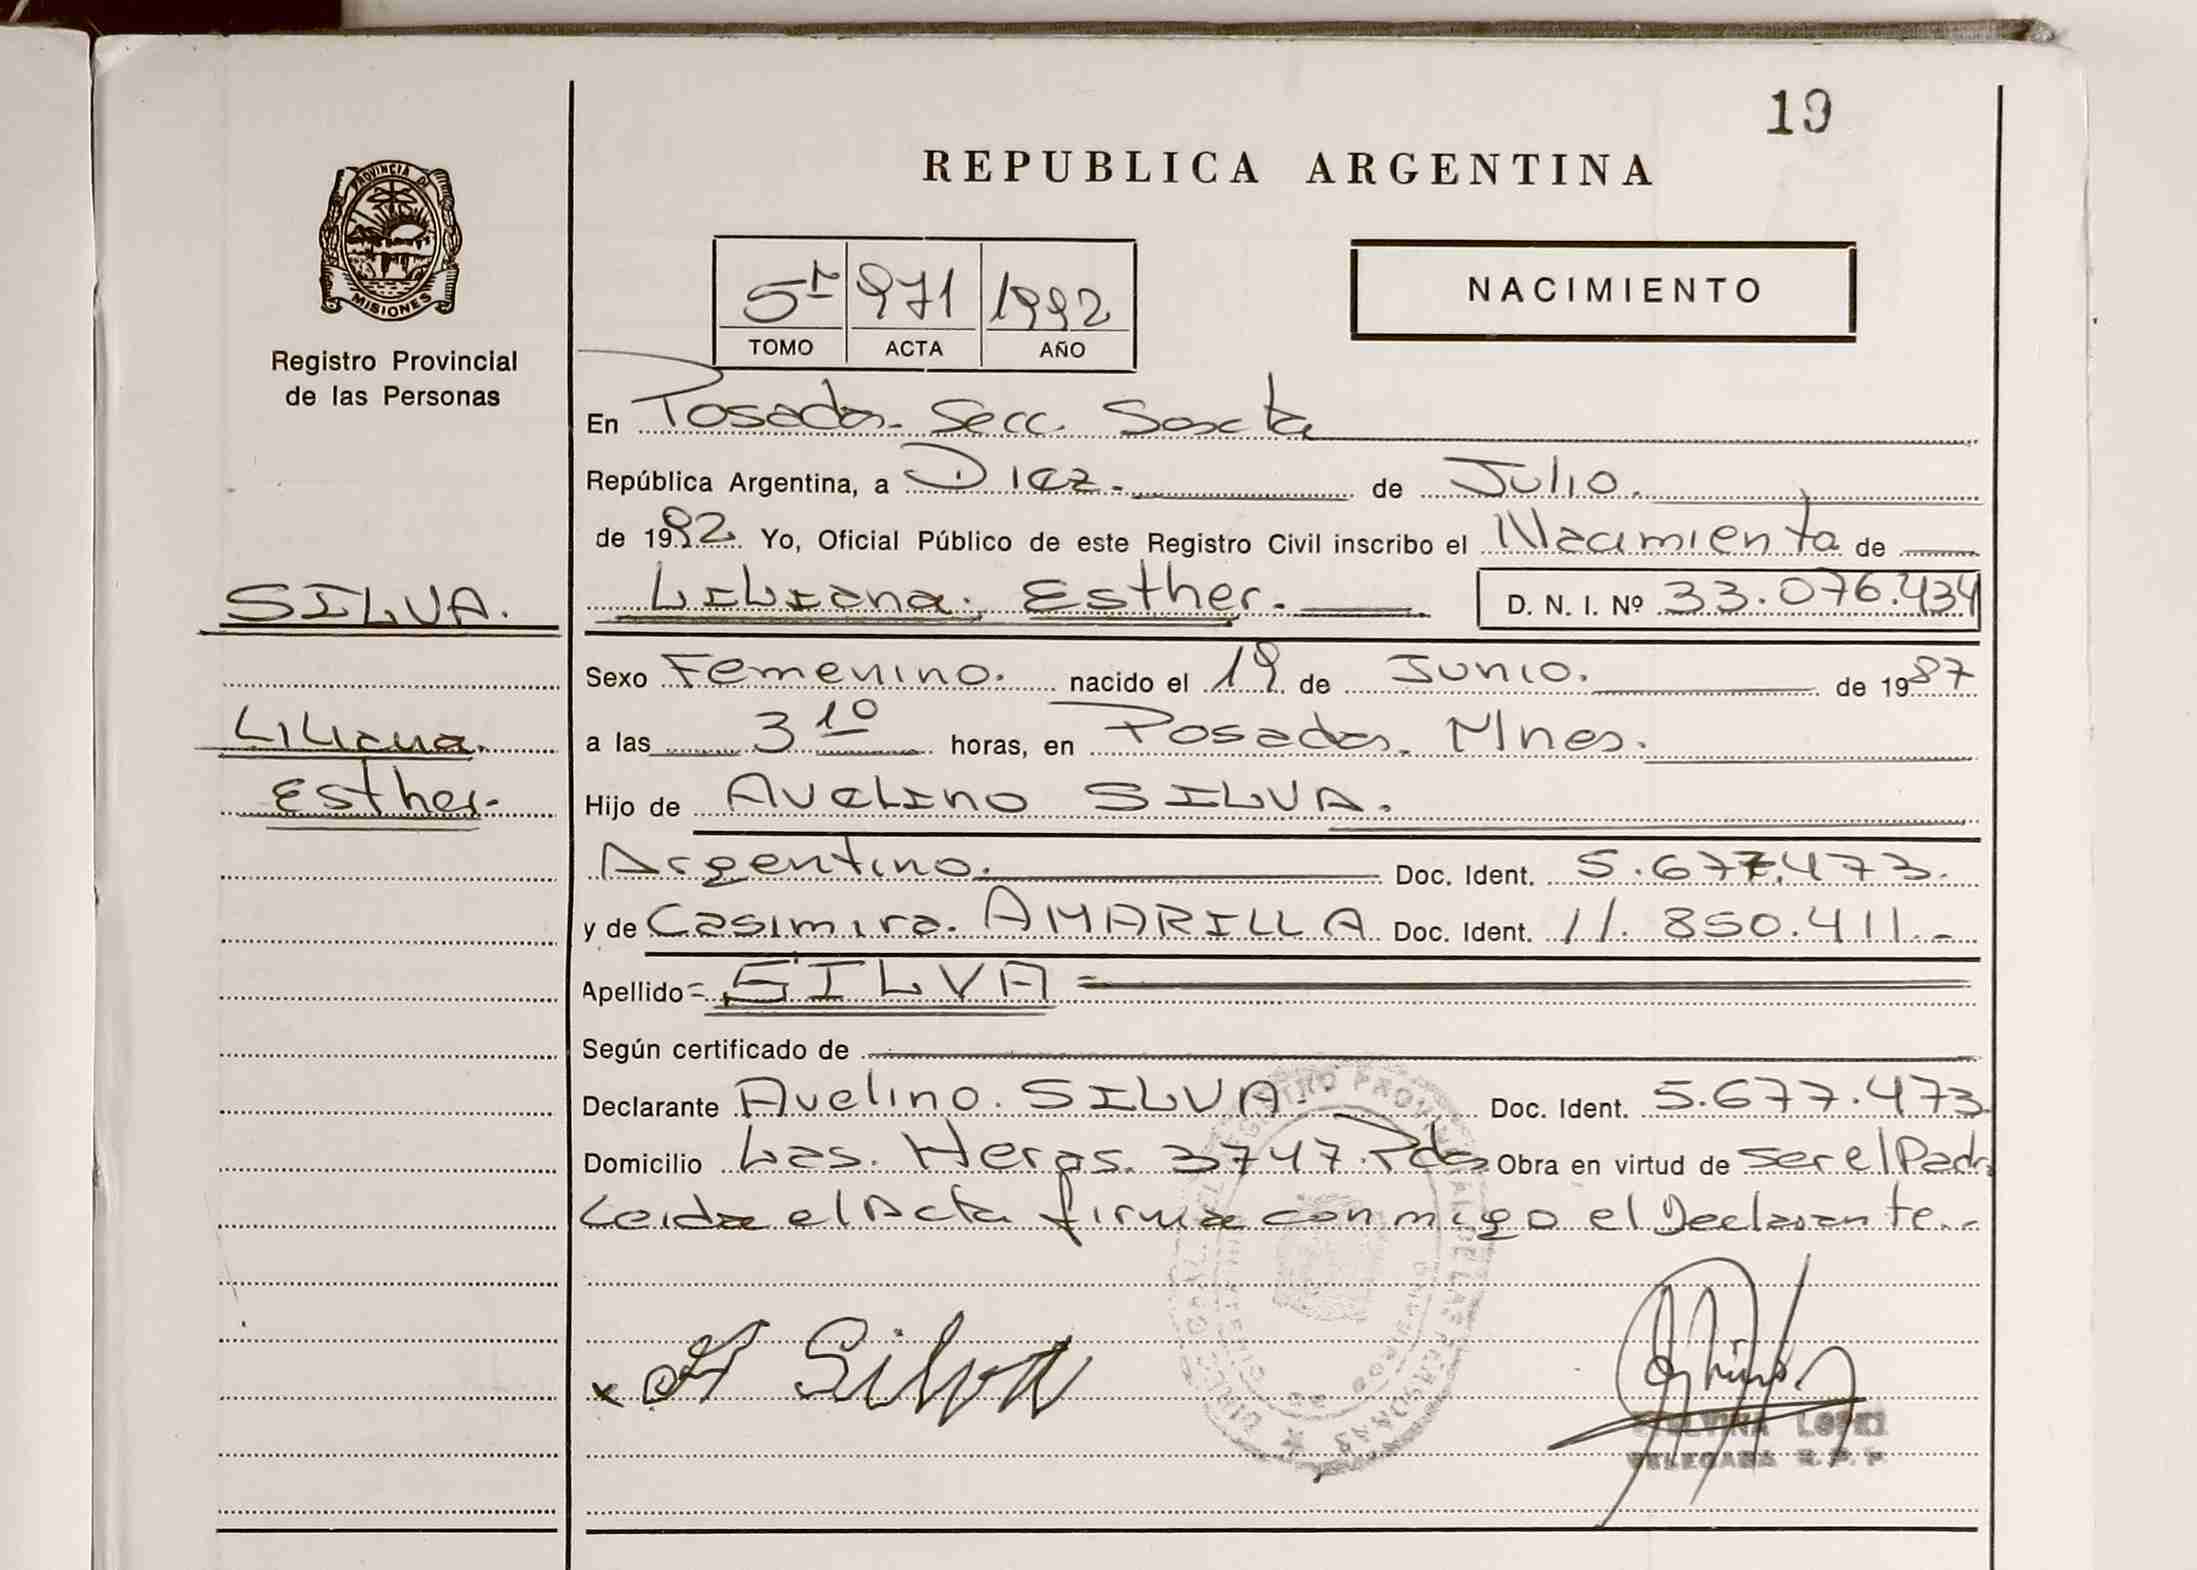 19
REPUBLICA ARGENTINA
PROVINCIA DE
MISIONES
Registro Provincial
de las Personas
5º 971 1992
TOMO ACTA AÑO
NACIMIENTO
En Posadas. Secc. Sexta
República Argentina, a Diez. de Julio.
de 1992. Yo, Oficial Público de este Registro Civil inscribo el Nacimiento de
SILVA.
Liliana. Esther. D. N. I. Nº 33.076.434
Sexo Femenino. nacido el 19 de Junio. de 1987
Liliana.
a las 3 10 horas, en Posadas. Mnes.
Esther.
Hijo de Avelino SILVA.
Argentino. Doc. Ident. 5.677.473.
y de Casimira. AMARILLA Doc. Ident. 11.850.411.-
Apellido = SILVA =
Según certificado de
Declarante Avelino. SILVA. Doc. Ident. 5.677.473
Domicilio Las. Heras. 3747. Pdas Obra en virtud de ser el Padre
Leida el Acta firma conmigo el Declarante.-
x A Silva
LOPEZ
DELEGADA R. P. P.